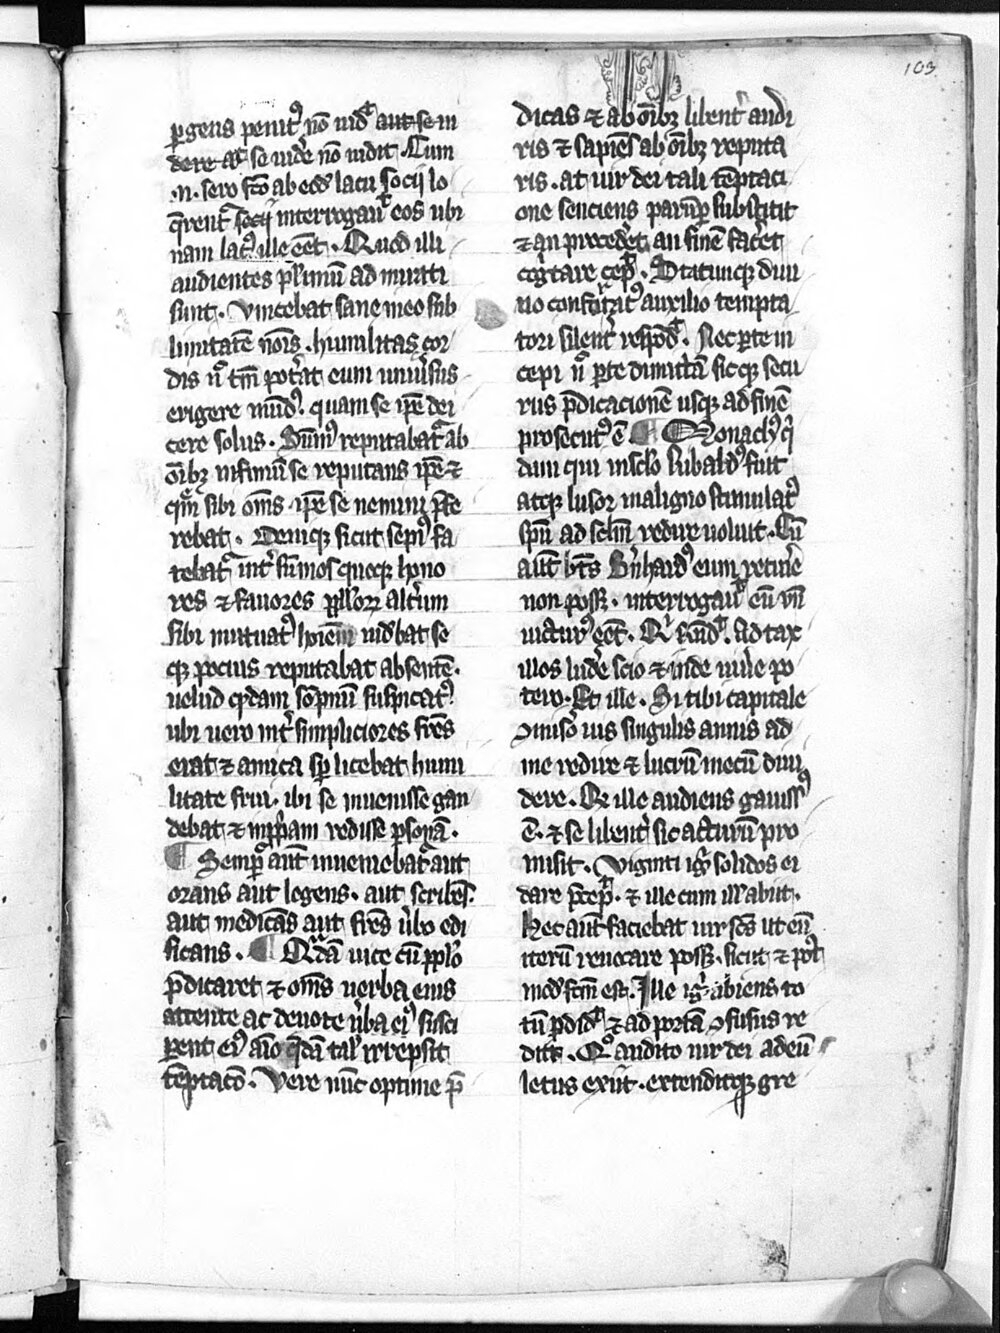 103
ꝑgens penitꝰ nō uidͥt aut se in
dere at se uidē nō uidit. Cum
.n. sero fc̄o ab eod̄ lacu socij lo
q̄rent socij interrogauͥt eos ubi
nam lacꝰ ille eēt. Quod illi
audientes pl̄imū ad mirati
sunt. Vincebat sane in eo sub
limitatē nōis humilitas cor
dis nͨ tm̄ pot̄at eum uniūsus
erigere mūdꝰ quam se ip̄e dei
cere solus. Sūmꝰ reputabat᷑ ab
oīb; infimū se reputans ip̄e ⁊
quē sibi om̄s ip̄e se nemini p̄fe
rebat. Deniqꝫ sicut sepiꝰ fa
tebat᷑ int̄ sūmos quoqꝫ hono
res ⁊ fauores ppl̄oꝝ alt̄um
sibi mutuatꝰ hoīem uidebat᷑ se
qꝫ pocius reputabat absentē.
uelud qͦdam sōpniū suspicatꝰ.
ubi uero int̄ simpliciores fr̄es
erat ⁊ amica sp̄ licebat humi
litate frui. ibi se inuenisse gau
debat ⁊ in ppͥam redisse ꝑsonā.
¶ Semꝑ aūt inueniebat᷑ aut
orans aut legens. aut scribēs.
aut meditās aut fr̄es ūbo edi
ficans. ¶ Qͣdā uice cū ppl̄o
p̄dicaret ⁊ om̄s uerba eius
attente ac deuote ūba eiꝰ susci
ꝑent eiꝰ aīo q̄dā tal᷑ irrepsit
tēptacō. Vere nūc optime p̄
dicas ⁊ ab oīb; libent̄ audi
ris ⁊ sapiēs ab oīb; reputa
ris. at uir dei tali tēptaci
one senciens parūꝑ substitit
⁊ an procedēt an finē facēt
cogitare cepͥt. Statimqꝫ diui
no confortatꝰ auxilio tempta
tori silent̄ respōdͥt. Nec ꝑ te in
cepi nͨ ꝑ te dimittā sicqꝫ secu
rus p̄dicacionē usqꝫ ad finē
prosecutꝰ ē ¶ Monachꝰ qͥ
dam qui in sclo ribaldꝰ fuit
atqꝫ lusor maligno stimulatꝰ
spū ad sclm redire uoluit. Cū
aūt btūs B̄nhardꝰ eum retinē
non possꝫ. interrogauͥt eū vn̄
uicturꝰ eēt. Qͥ r̄ndͥt. Ad tax
illos ludē scio ⁊ inde uiūe po
tero. Et ille. Si tibi capitale
ꝯmisō uis singulis annis ad
me redire ⁊ lucrū mecū diui
dere. Qͥ ille audiens gauisꝰ
ē. ⁊ se libent̄ sic acturū pro
misit. Viginti igͥ solidos ei
dare p̄cepͥt. ⁊ ille cum ill᷑ abiit.
Hec aūt faciebat uir sc̄s ut eū
iterū reuocare possꝫ. sicut ⁊ pͦt
mod̄ fcm̄ est. Ille igͥ abiens to
tū ꝑdidͥt ⁊ ad portā ꝯfusus re
diit. Qͦ audito uir dei ad eū
letus exiit. extenditqꝫ gre